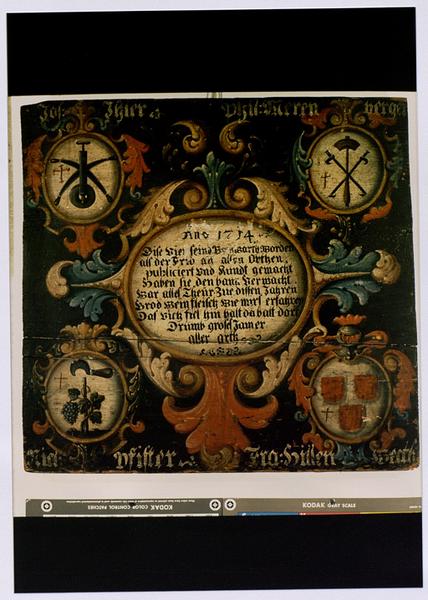 Joh: Thier Phil:
Ano 1714
Dise Vier seind Worden
als der Frid an allen Orthen,
publiciert Und Kundt gemacht
Haben sie den banc Vermacht
War alles Theur Zue dissen Jahren
Brod Wein fleisch Wie mirs erfahren
Das Vich fiel hin balt da balt dort
Drumb groser Jamer
aller arth
pfister Fra: Hillen
KODAK COLOR CONTROL PATCHES KODAK GRAY SCALE